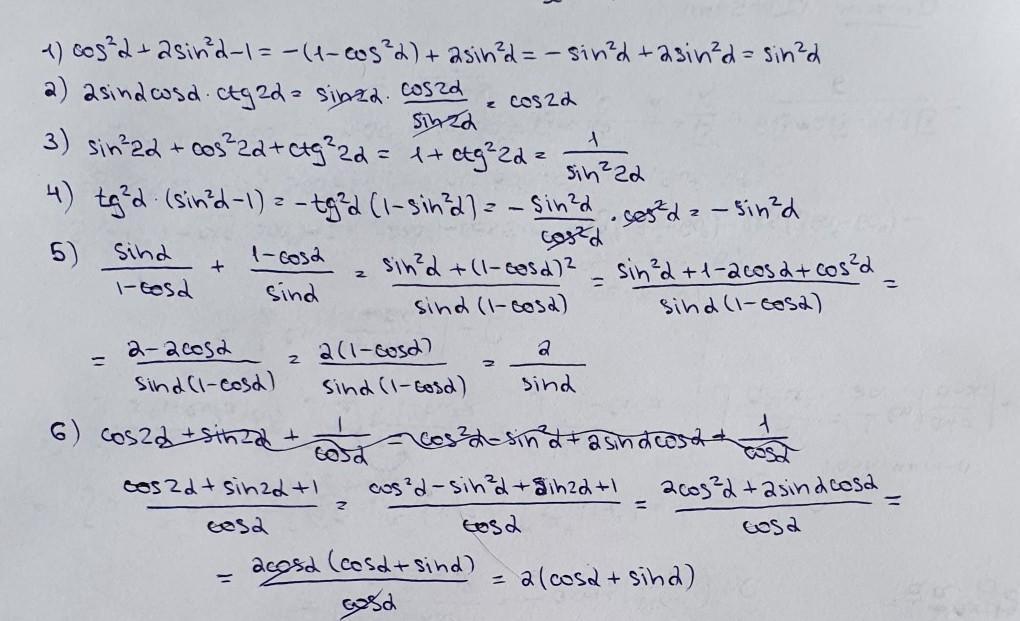 1) cos²α + 2sin²α - 1 = -(1 - cos²α) + 2sin²α = - sin²α + 2sin²α = sin²α
2) 2sinαcosα · ctg2α = sin2α · cos2α/sin2α = cos2α
3) sin²2α + cos²2α + ctg²2α = 1 + ctg²2α = 1/sin²2α
4) tg²α · (sin²α - 1) = -tg²α (1 - sin²α) = - sin²α/cos²α · cos²α = - sin²α
5) sinα/(1 - cosα) + (1 - cosα)/sinα = (sin²α + (1 - cosα)²)/(sinα (1 - cosα)) = (sin²α + 1 - 2cosα + cos²α)/(sinα (1 - cosα)) =
= (2 - 2cosα)/(sinα (1 - cosα)) = 2(1 - cosα)/(sinα (1 - cosα)) = 2/sinα
6) cos2α + sin2α + 1/cosα = cos²α - sin²α + 2sinαcosα + 1/cosα
(cos2α + sin2α + 1)/cosα = (cos²α - sin²α + sin2α + 1)/cosα = (2cos²α + 2sinαcosα)/cosα =
= 2cosα (cosα + sinα)/cosα = 2(cosα + sinα)